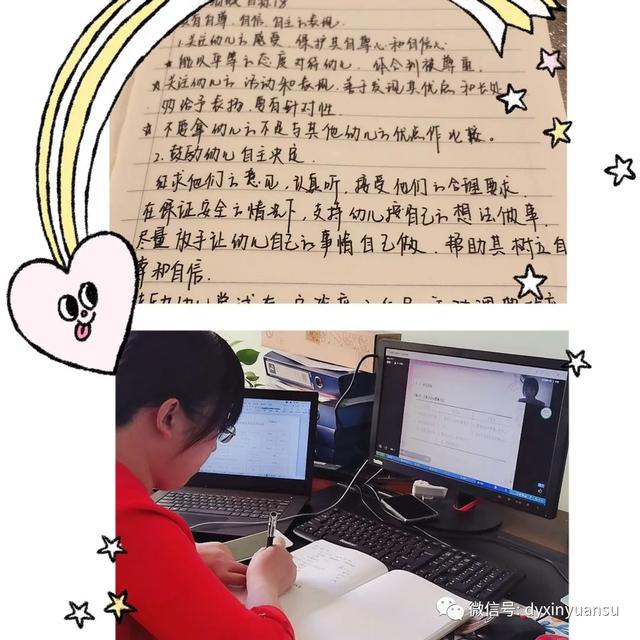 具有自尊、自信、自主的表现.
1.关注幼儿的感受,保护其自尊心和自信心.
★能以平等的态度对待幼儿,体会到被尊重.
★关注幼儿的活动和表现,善于发现其优点和长处,
的给予表扬,要有针对性.
★不要拿幼儿的不足与其他幼儿的优点作比较。
2.鼓励幼儿自主决定.
征求他们的意见,认真听,接受他们的合理要求.
在保证安全的情况下,支持幼儿按自己的想法做事.
尽量放手让幼儿自己的事情自己做,帮助其树立自
尊和自信.
微信号: dyxinyuansu